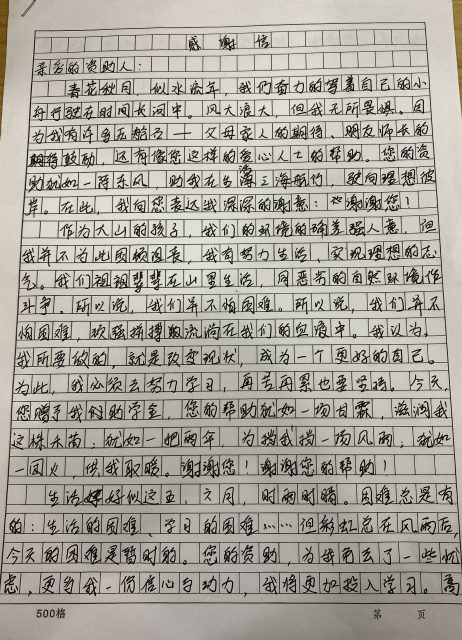 感谢信
亲爱的资助人:
春花秋月,似水流年,我们奋力的驾着自己的小
舟行驶在时间长河中。风大浪大,但我无所畏惧。因
为我有许多在船方——父母家人的期待、朋友师长的
期待鼓励,还有像您这样的爱心人士的帮助。您的资
助犹如一阵东风,助我在生涯之海航行,驶向理想彼
岸。在此,我向您表达我深深的谢意:谢谢您!
作为大山的孩子,我们的环境的确差强人意,但
我并不为此困顿沮丧,我有努力生活,实现理想的志
气。我们祖祖辈辈在山里生活,同恶劣的自然环境作
斗争。所以说,我们并不怕困难。所以说,我们并不
怕困难,顽强拼搏取流淌在我们的血液中。我认为,
我所要做的,就是改变现状,成为一个更好的自己。
为此,我必须去努力学习,再苦再累也要坚持。今天,
您赠予我的助学金,您的帮助犹如一场甘霖,滋润我
这株禾苗;犹如一把雨伞,为我挡一场风雨;犹如
一团火,供我取暖。谢谢您!谢谢您的帮助!
生活好似这五、六月,时雨时晴。困难总是有
的:生活的困难、学习的困难……但彩虹总在风雨后,
今天的困难是暂时的。您的资助,为我免去了一些忧
虑,更予我一份信心与动力,我将更加投入学习。高
500格
第 页